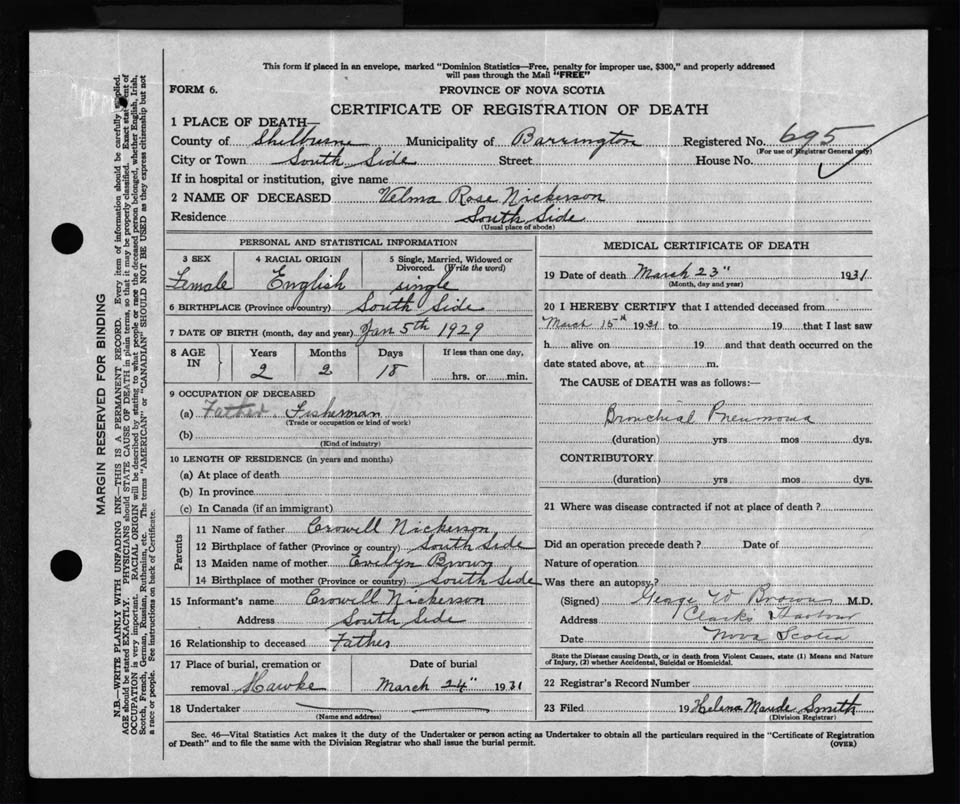 This form if placed in an envelope, marked "Dominion Statistics—Free, penalty for improper use, $300," and properly addressed
will pass through the Mail "FREE"
FORM 6.
PROVINCE OF NOVA SCOTIA
CERTIFICATE OF REGISTRATION OF DEATH
1 PLACE OF DEATH—
County of Shelburne Municipality of Barrington Registered No. 695
(For use of Registrar General only)
City or Town South Side Street House No.
If in hospital or institution, give name
2 NAME OF DECEASED Velma Rose Nickerson
Residence South Side
(Usual place of abode)
PERSONAL AND STATISTICAL INFORMATION
3 SEX 4 RACIAL ORIGIN 5 Single, Married, Widowed or
Divorced. (Write the word)
Female English single
6 BIRTHPLACE (Province or country) South Side
7 DATE OF BIRTH (month, day and year) Jan 5th 1929
8 AGE IN Years Months Days If less than one day,
2 2 18 hrs. or min.
9 OCCUPATION OF DECEASED
(a) Father Fisherman
(Trade or occupation or kind of work)
(b)
(Kind of industry)
10 LENGTH OF RESIDENCE (in years and months)
(a) At place of death
(b) In province
(c) In Canada (if an immigrant)
Parents
11 Name of father Crowell Nickerson
12 Birthplace of father (Province or country) South Side
13 Maiden name of mother Evelyn Brown
14 Birthplace of mother (Province or country) South Side
15 Informant's name Crowell Nickerson
Address South Side
16 Relationship to deceased Father
17 Place of burial, cremation or Date of burial
removal Hawke March 24" 1931
18 Undertaker
(Name and address)
MEDICAL CERTIFICATE OF DEATH
19 Date of death March 23" 1931
(Month, day and year)
20 I HEREBY CERTIFY that I attended deceased from
March 15th 1931 to 19 that I last saw
h alive on 19 and that death occurred on the
date stated above, at m.
The CAUSE of DEATH was as follows:—
Bronchial Pneumonia
(duration) yrs mos dys.
CONTRIBUTORY
(duration) yrs mos dys.
21 Where was disease contracted if not at place of death?
Did an operation precede death? Date of
Nature of operation
Was there an autopsy?
(Signed) George W Brown M.D.
Address Clark's Harbour
Date Nova Scotia
State the Disease causing Death, or in death from Violent Causes, state (1) Means and Nature
of Injury, (2) whether Accidental, Suicidal or Homicidal.
22 Registrar's Record Number
23 Filed 19 Helena Maude Smith
(Division Registrar)
Sec. 46—Vital Statistics Act makes it the duty of the Undertaker or person acting as Undertaker to obtain all the particulars required in the "Certificate of Registration
of Death" and to file the same with the Division Registrar who shall issue the burial permit. (OVER)
MARGIN RESERVED FOR BINDING
N.B.—WRITE PLAINLY WITH UNFADING INK—THIS IS A PERMANENT RECORD. Every item of information should be carefully supplied.
AGE should be stated EXACTLY. PHYSICIANS should STATE CAUSE OF DEATH in plain terms, so that it may be properly classified. Exact statement of
OCCUPATION is very important. RACIAL ORIGIN will be described by stating to what people or race the deceased person belonged, whether English, Irish,
Scotch, French, German, Russian, Ruthenian, etc. The terms "AMERICAN" or "CANADIAN" SHOULD NOT BE USED as they express citizenship but not
a race or people. See instructions on back of Certificate.